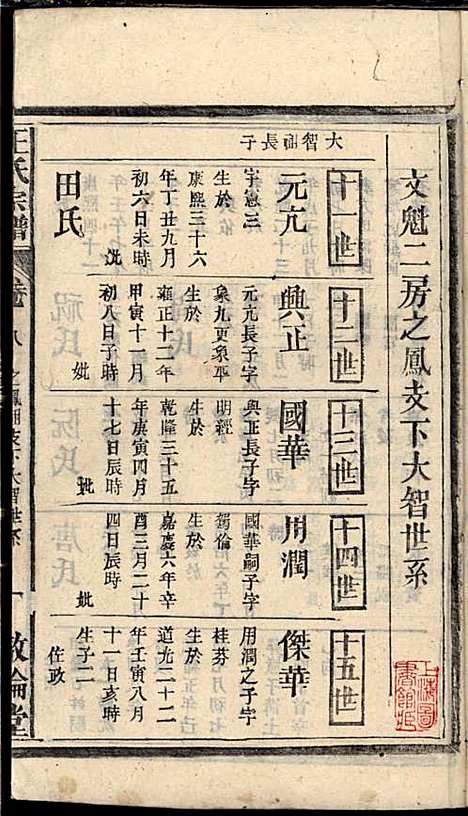 文魁二房之鳳支下大智世系
大智嗣長子
十一世
元亢
字憲三
生於
康熙三十六
年丁丑九月
初六日未時
妣
田氏
十二世
興正
元亢長子字
象九更象平
生於
雍正十二年
甲寅十一月
初八日子時
妣
十三世
國華
興正長子字
明經
生於
乾隆三十五
年庚寅四月
十七日辰時
妣
十四世
用潤
國華嗣子字
獨倫
生於
嘉慶六年辛
酉三月二十
四日辰時
妣
十五世
傑華
用潤之子字
桂芬
生於
道光二十二
年壬寅八月
十一日亥時
生子二
佐政
王氏宗譜
卷
八
大智世系
一
敦倫堂
上海圖書館藏